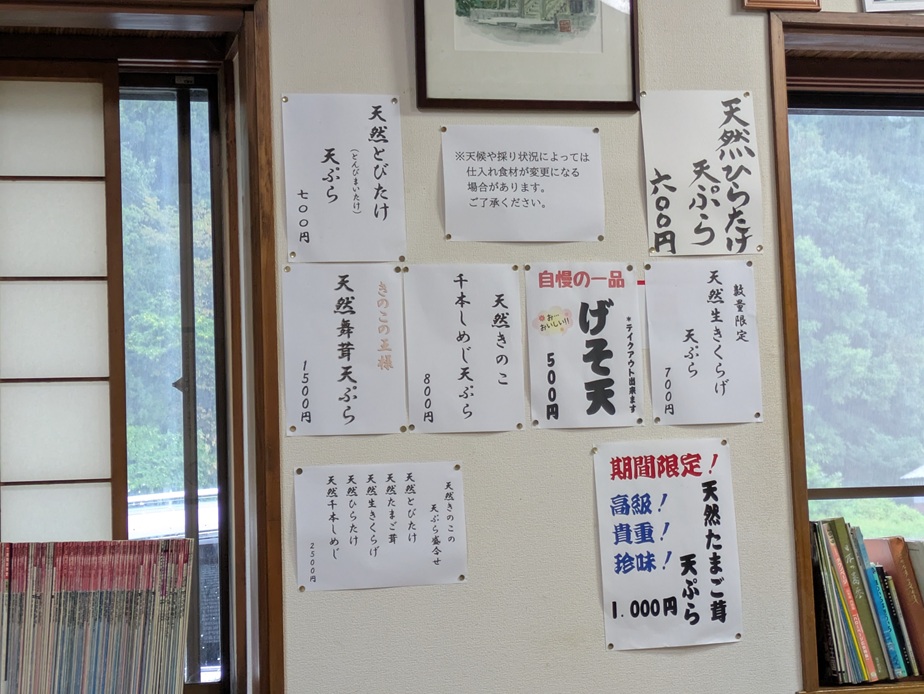 天然とびたけ
(とんびまいたけ)
天ぷら
七〇〇円
※天候や採り状況によっては
仕入れ食材が変更になる
場合があります。
ご了承ください。
天然ひらたけ
天ぷら
六〇〇円
きのこの王様
天然舞茸天ぷら
1500円
天然きのこ
千本しめじ天ぷら
800円
自慢の一品
*テイクアウト出来ます
げそ天
お〜
おいしい!!
500円
数量限定
天然生きくらげ
天ぷら
700円
天然きのこの
天ぷら盛合せ
天然とびたけ
天然たまご茸
天然生きくらげ
天然ひらたけ
天然千本しめじ
2500円
期間限定!
天然たまご茸
天ぷら
高級!
貴重!
珍味!
1.000円